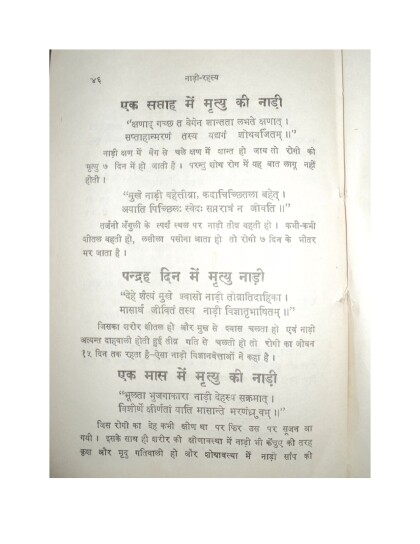 ४६
नाड़ी-रहस्य
एक सप्ताह में मृत्यु की नाड़ी
"क्षणाद् गच्छ त वेगेन शान्तता लभते क्षणात् ।
सप्ताहान्मरणं तस्य यद्यगं शोथवर्जितम् ॥"
नाड़ी क्षण में वेग से चले क्षण में शान्त हो जाय तो रोगी को
मृत्यु ७ दिन में हो जाती है । परन्तु शोथ रोग में यह बात लागू नहीं
होती ।
"मुखे नाड़ी वहेत्तीव्रा, कदाचिच्छितला वहेत् ।
अयाति पिच्छिलः स्वेदः सप्तरात्रं न जीवति ॥"
तर्जनी अँगुली के स्पर्श स्थल पर नाड़ी तीव्र बहती हो । कभी-कभी
शीतल बहती हो, लसीला पसीना आता हो तो रोगी ७ दिन के भीतर
मर जाता है ।
पन्द्रह दिन में मृत्यु नाड़ी
"देहे शैत्यं मुखे श्वासो नाड़ी तीव्रातिदाहिका ।
मासार्धं जीवितं तस्य नाड़ी विज्ञातृभाषितम् ॥"
जिसका शरीर शीतल हो और मुख से श्वास चलता हो एवं नाड़ी
अत्यन्त दाहवाली होती हुई तीव्र गति से चलती हो तो रोगी का जीवन
१५ दिन तक रहता है-ऐसा नाड़ी विज्ञानवेत्ताओं ने कहा है ।
एक मास में मृत्यु की नाड़ी
"भूलता भुजगाकारा नाड़ी देहस्य सक्रमात् ।
विशीर्णे क्षीणतां याति मासान्ते मरणंध्रुवम् ॥"
जिस रोगी का देह कभी क्षीण था पर फिर उस पर सूजन आ
गयी । इसके साथ ही शरीर की क्षीणावस्था में नाड़ी भी केंचुए की तरह
कृश और मृदु गतिवाली हो और शोथावस्था में नाड़ी साँप की